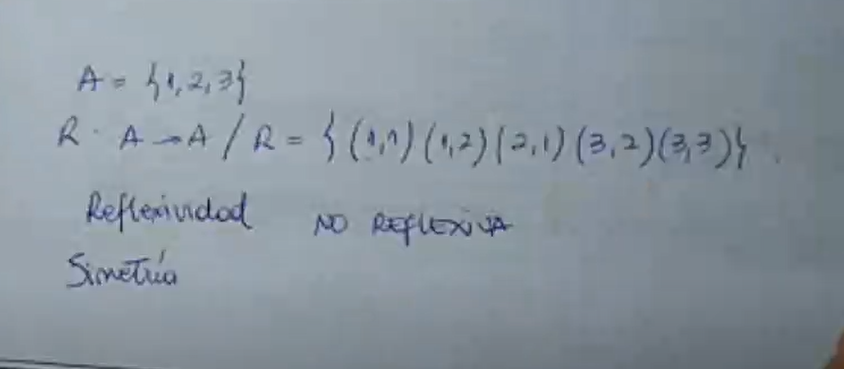 A = {1,2,3}
R · A → A / R = {(1,1) (1,2) (2,1) (3,2) (3,3)}.
Reflexividad NO REFLEXIVA
Simetría